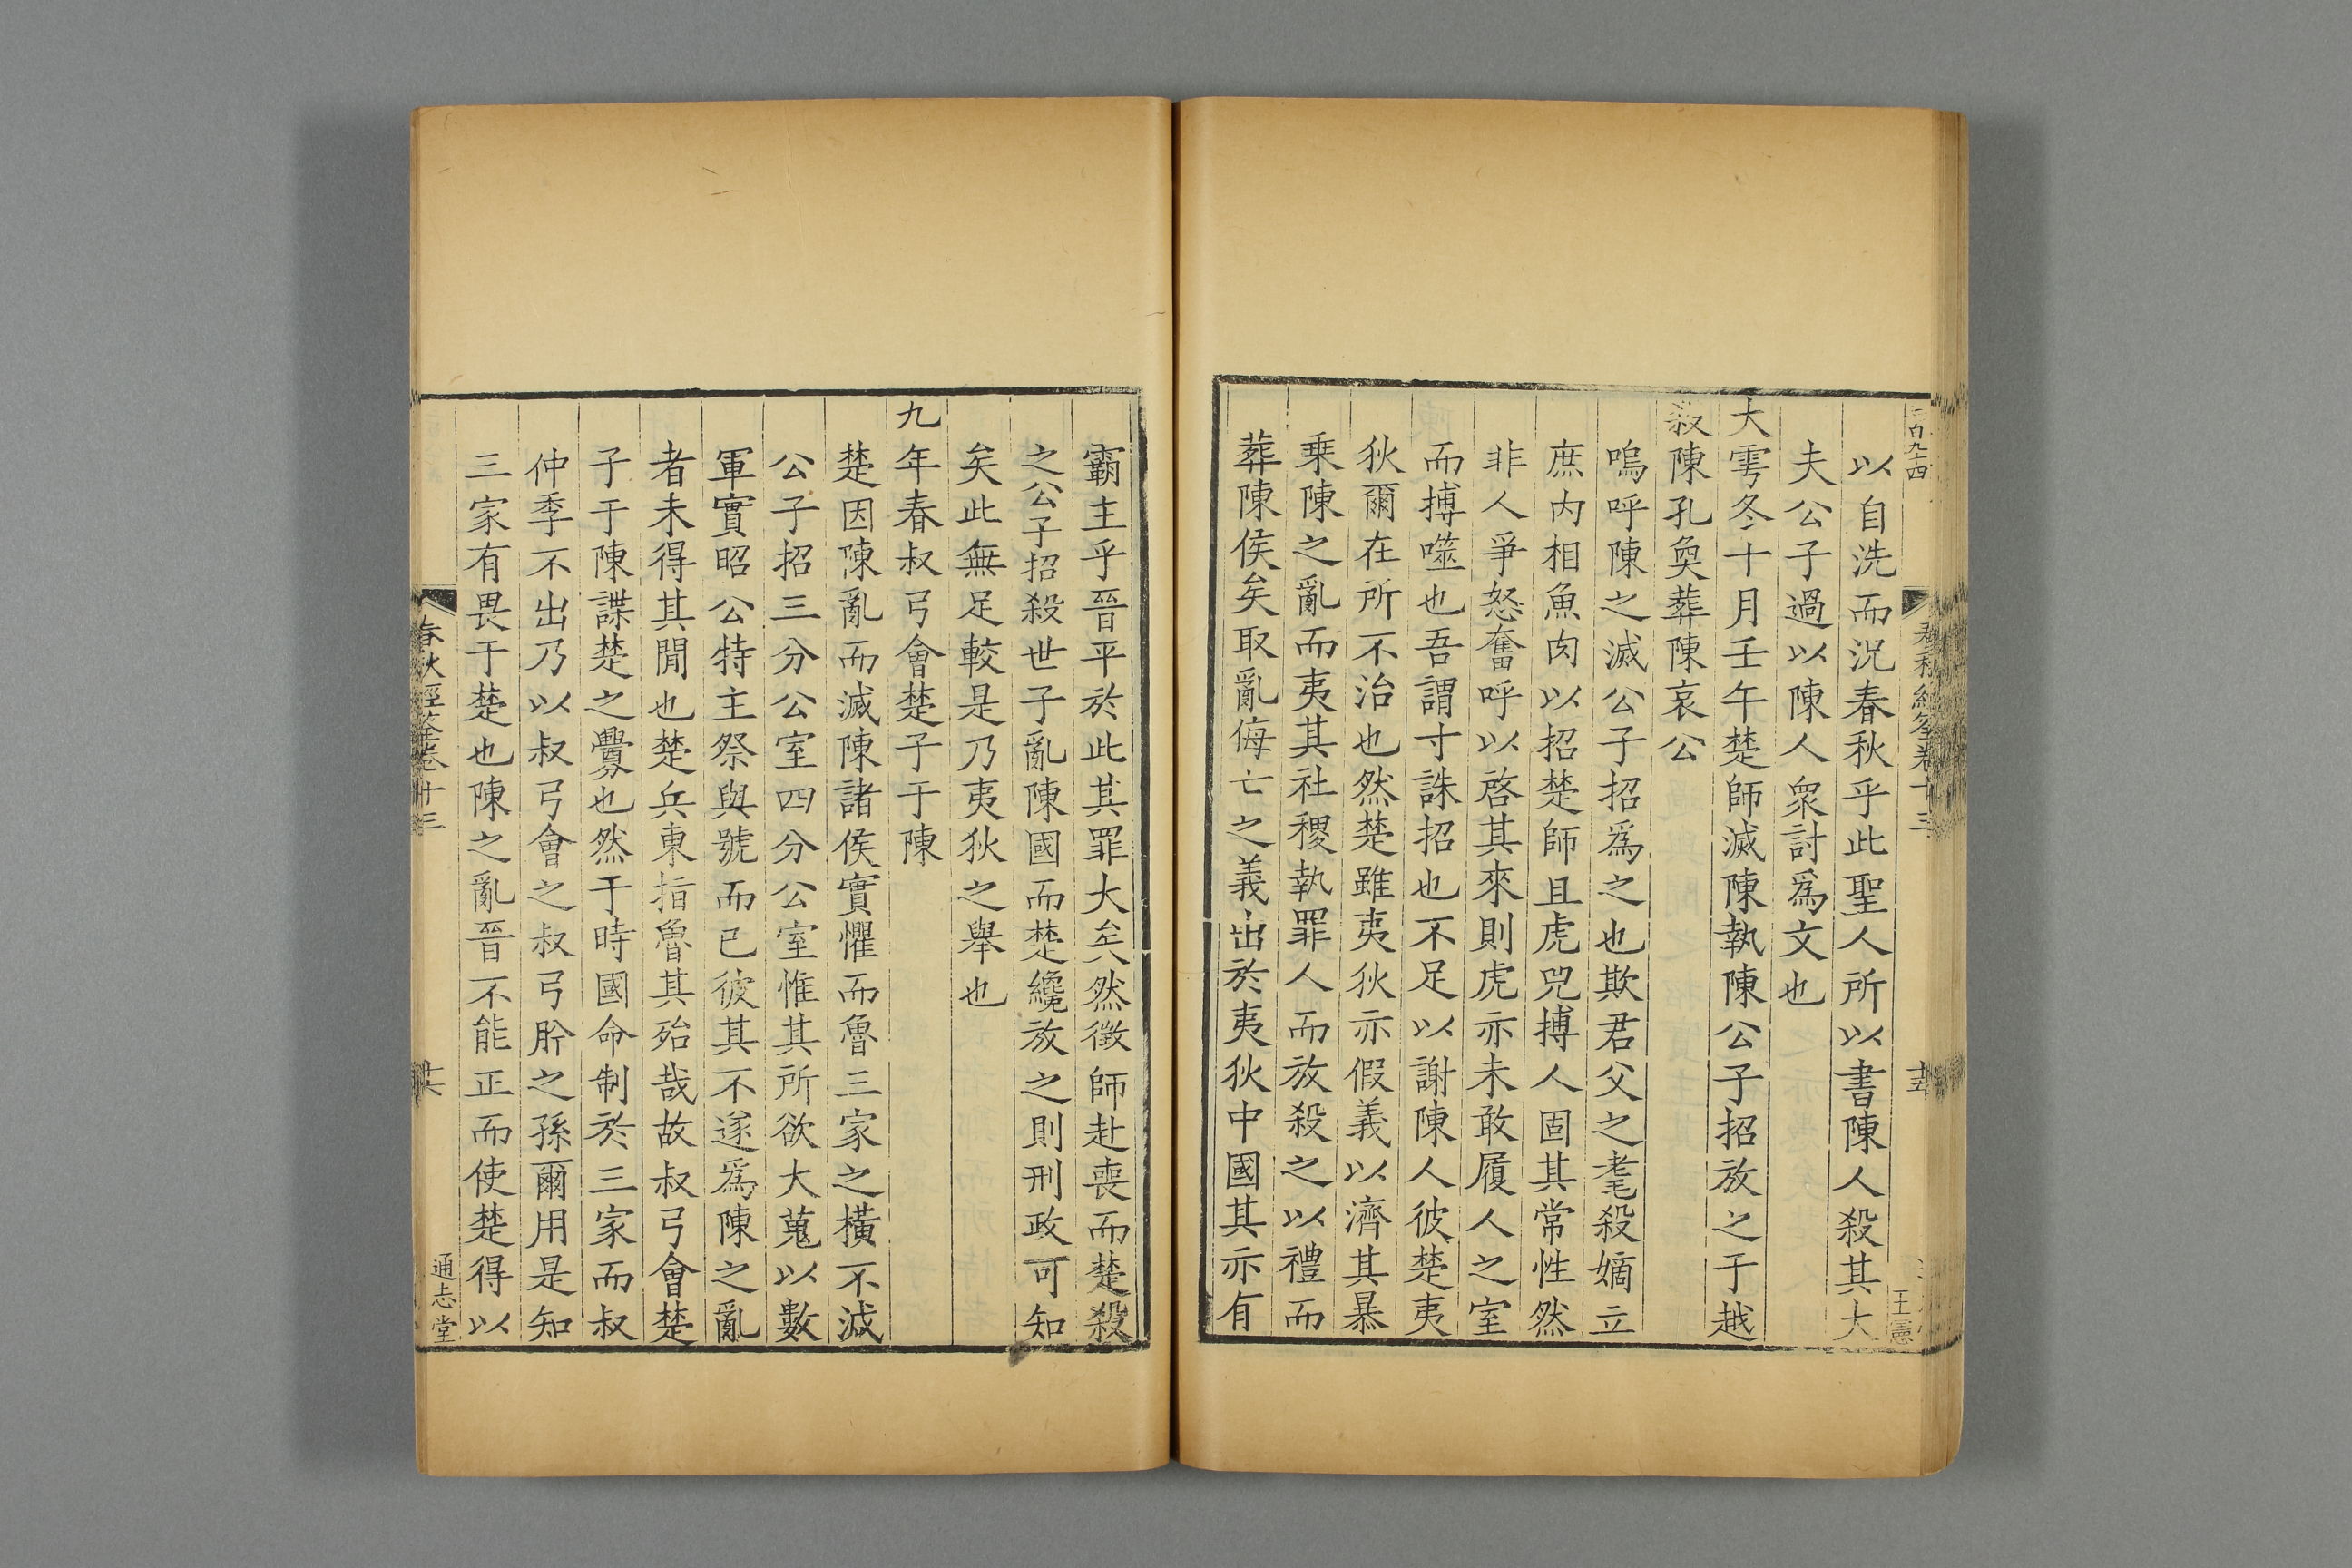 以自洗而況春秋乎此聖人所以書陳人殺其大
夫公子過以陳人衆討爲文也
大雩冬十月壬午楚師滅陳執陳公子招放之于越
殺陳孔奐葬陳哀公
嗚呼陳之滅公子招爲之也欺君父之耄殺嫡立
庶内相魚肉以招楚師且虎兕搏人固其常性然
非人爭怒奮呼以啓其來則虎亦未敢履人之室
而搏噬也吾謂寸誅招也不足以謝陳人彼楚夷
狄爾在所不治也然楚雖夷狄亦假義以濟其暴
乗陳之亂而夷其社稷執罪人而放殺之以禮而
葬陳侯矣取亂侮亡之義出於夷狄中國其亦有
霸主乎晉平於此其罪大矣然徵師赴喪而楚殺
之公子招殺世子亂陳國而楚纔放之則刑政可知
矣此無足較是乃夷狄之舉也
九年春叔弓會楚子于陳
楚因陳亂而滅陳諸侯實懼而魯三家之橫不減
公子招三分公室四分公室惟其所欲大蒐以數
軍實昭公特主祭與號而已彼其不遂爲陳之亂
者未得其閒也楚兵東指魯其殆哉故叔弓會楚
子于陳諜楚之釁也然于時國命制於三家而叔
仲季不出乃以叔弓會之叔弓肸之孫爾用是知
三家有畏于楚也陳之亂晉不能正而使楚得以
春秋經筌卷十三
十六
通志堂